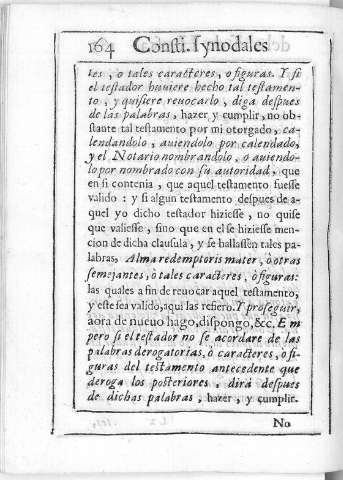 164 Consti. synodales
les, o tales caracteres, o figuras. Y si
el testador huuiere hecho tal testamen-
to, y quisiere reuocarlo, diga despues
de las palabras, hazer y cumplir, no ob-
stante tal testamento por mi otorgado, ca-
lendandolo, auiendolo por calendado,
y el Notario nombrandolo, o auiendo-
lo por nombrado con su autoridad, que
en si contenia, que aquel testamento fuesse
valido: y si algun testamento despues de a-
quel yo dicho testador hiziesse, no quise
que valiesse, sino que en el se hiziesse men-
cion de dicha clausula, y se hallassen tales pa-
labras, Alma redemptoris mater, ò otras
semejantes, ò tales caracteres, ò figuras:
las quales a fin de reuocar aquel testamento,
y este sea valido, aqui las refiero. Y proseguir,
aora de nueuo hago, dispongo, &c. Em
pero si el testador no se acordare de las
palabras derogatorias, ò caracteres, ò fi-
guras del testamento antecedente que
deroga los posteriores, dirà despues
de dichas palabras, hazer, y cumplir.
No